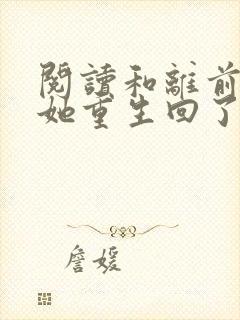 閱讀和離前
她重生回了
詹媛